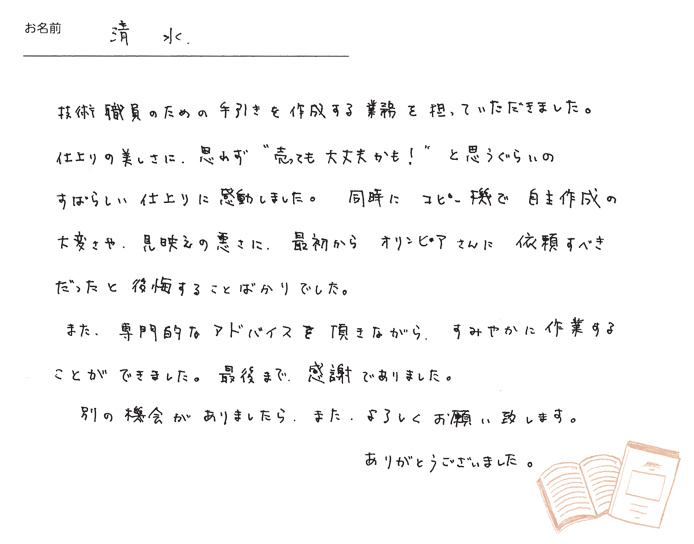 お名前 清 水.
技術職員のための手引きを作成する業務を担っていただきました。
仕上りの美しさに、思わず“売っても大丈夫かも！”と思うぐらいの
すばらしい仕上りに感動しました。 同時にコピー機で自主作成の
大変さや、見映えの悪さに、最初からオリンピアさんに依頼すべき
だったと後悔することばかりでした。
また、専門的なアドバイスを頂きながら、すみやかに作業する
ことができました。最後まで、感謝でありました。
別の機会がありましたら、また、よろしくお願い致します。
ありがとうございました。